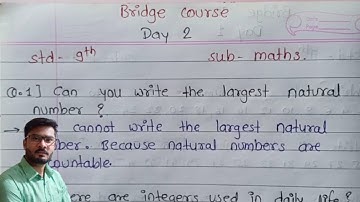 Bridge course
Day 2
std- 9th sub- maths.
Q.1] Can you write the largest natural
number ?
→ cannot write the largest natural
. Because natural numbers are
are integers used in daily life?